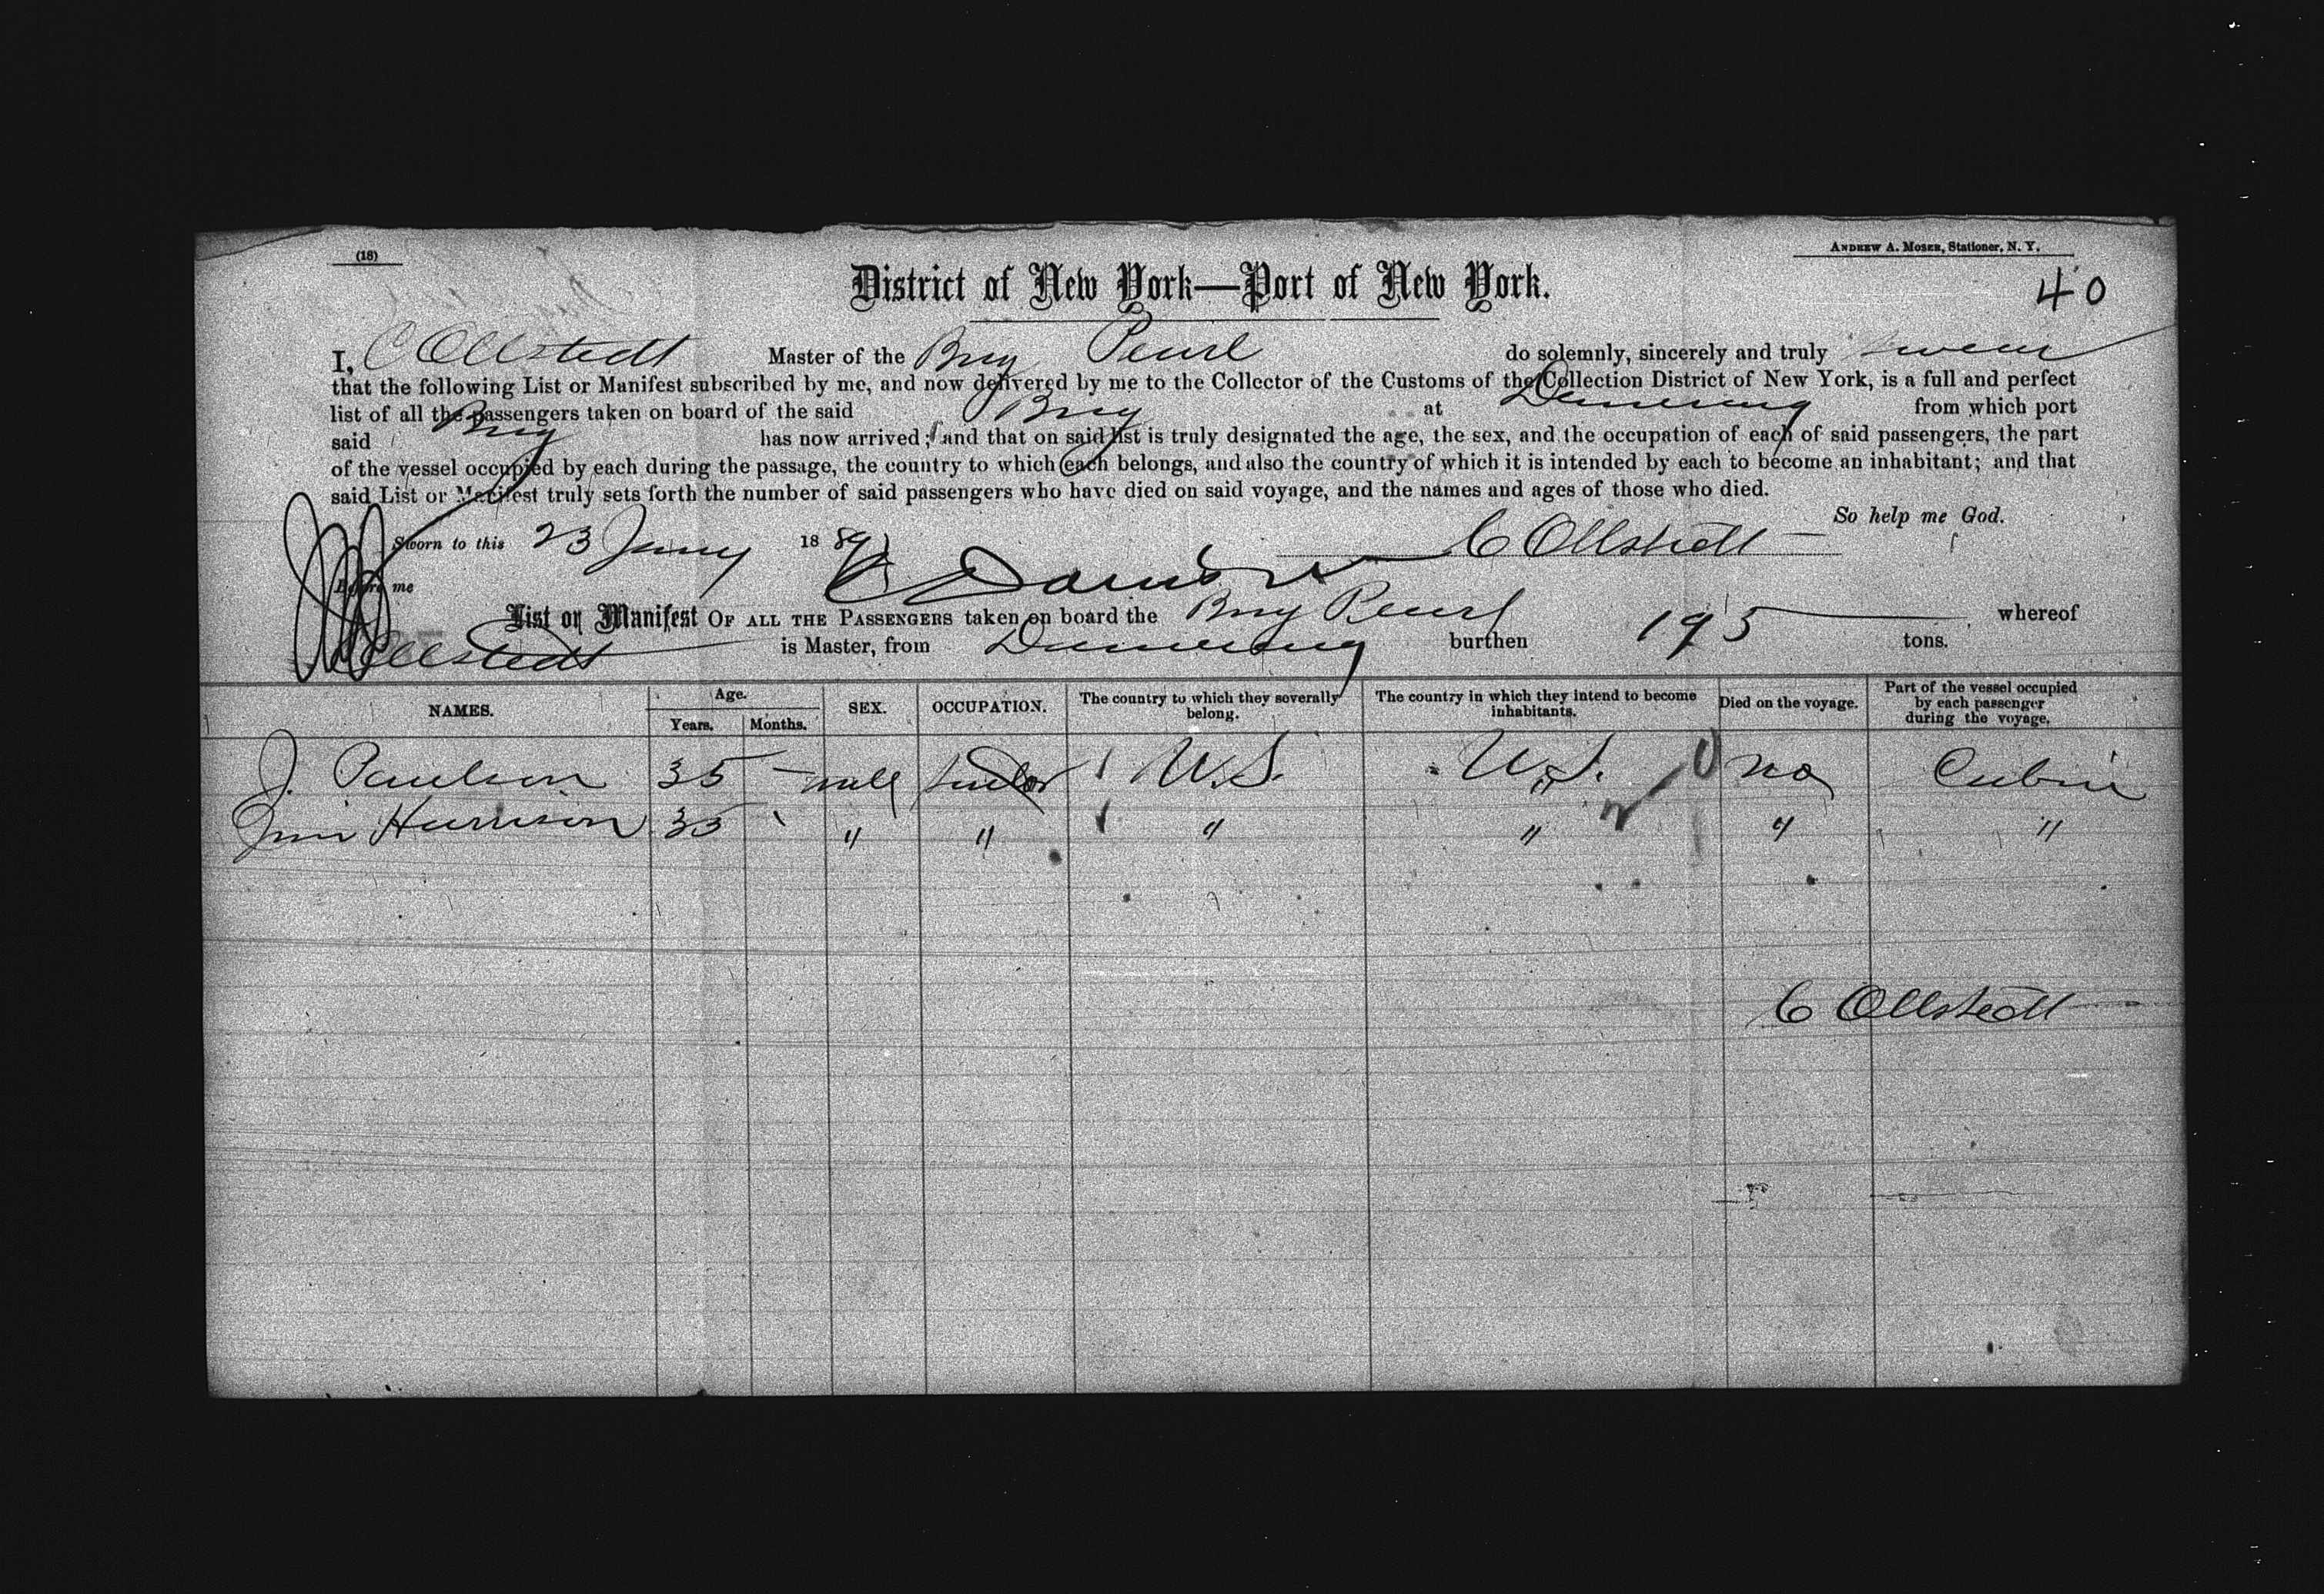 (18)
ANDREW A. MOSER, Stationer, N. Y.
District of New York—Port of New York.
40
I, C Ollstedt Master of the Brig Pearl do solemnly, sincerely and truly swear
that the following List or Manifest subscribed by me, and now delivered by me to the Collector of the Customs of the Collection District of New York, is a full and perfect
list of all the passengers taken on board of the said Brig at Demerary from which port
said Brig has now arrived; and that on said list is truly designated the age, the sex, and the occupation of each of said passengers, the part
of the vessel occupied by each during the passage, the country to which each belongs, and also the country of which it is intended by each to become an inhabitant; and that
said List or Manifest truly sets forth the number of said passengers who have died on said voyage, and the names and ages of those who died.
So help me God.
Sworn to this 23 Jany 1889 C Ollstedt
Before me
List or Manifest OF ALL THE PASSENGERS taken on board the Brig Pearl whereof
C Ollstedt is Master, from Demerary burthen 195 tons.
NAMES. Age. Years. Months. SEX. OCCUPATION. The country to which they severally belong. The country in which they intend to become inhabitants. Died on the voyage. Part of the vessel occupied by each passenger during the voyage.
J. Paulson 35 — male sailor U.S. U.S. no Cabin
Jim Harrison 35 " " " " " "
C Ollstedt